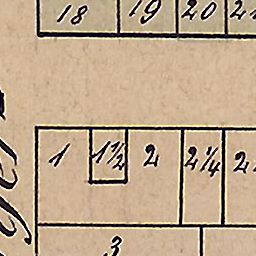 18 19 20
1 1½ 2 2¼ 2
3